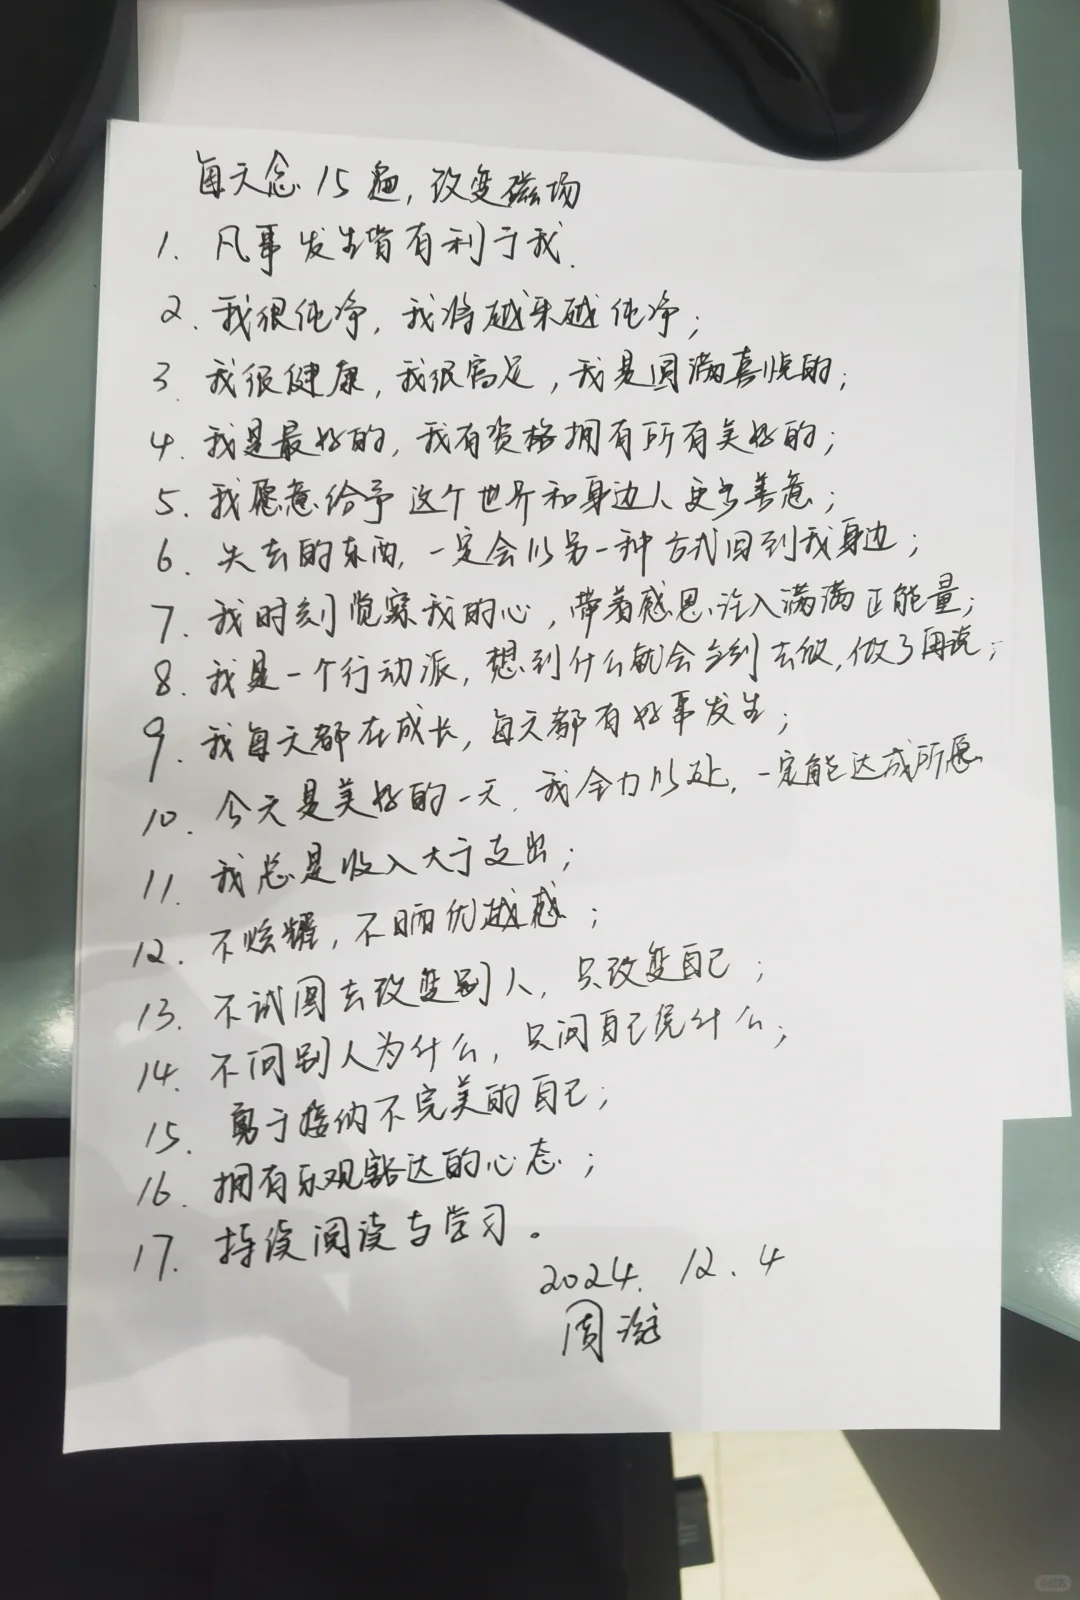 每天念15遍,改变磁场
1. 凡事发生皆有利于我.
2. 我很纯净,我将越来越纯净;
3. 我很健康,我很富足,我是圆满喜悦的;
4. 我是最好的,我有资格拥有所有美好的;
5. 我愿意给予这个世界和身边人更多善意;
6. 失去的东西,一定会以另一种方式回到我身边;
7. 我时刻觉察我的心,带着感恩,注入满满正能量;
8. 我是一个行动派,想到什么就会立刻去做,做了再说;
9. 我每天都在成长,每天都有好事发生;
10. 今天是美好的一天,我全力以赴,一定能达成所愿
11. 我总是收入大于支出;
12. 不炫耀,不晒优越感;
13. 不试图去改变别人,只改变自己;
14. 不问别人为什么,只问自己凭什么;
15. 勇于接纳不完美的自己;
16. 拥有乐观豁达的心态;
17. 持续阅读与学习。
2024. 12. 4
周
小红书